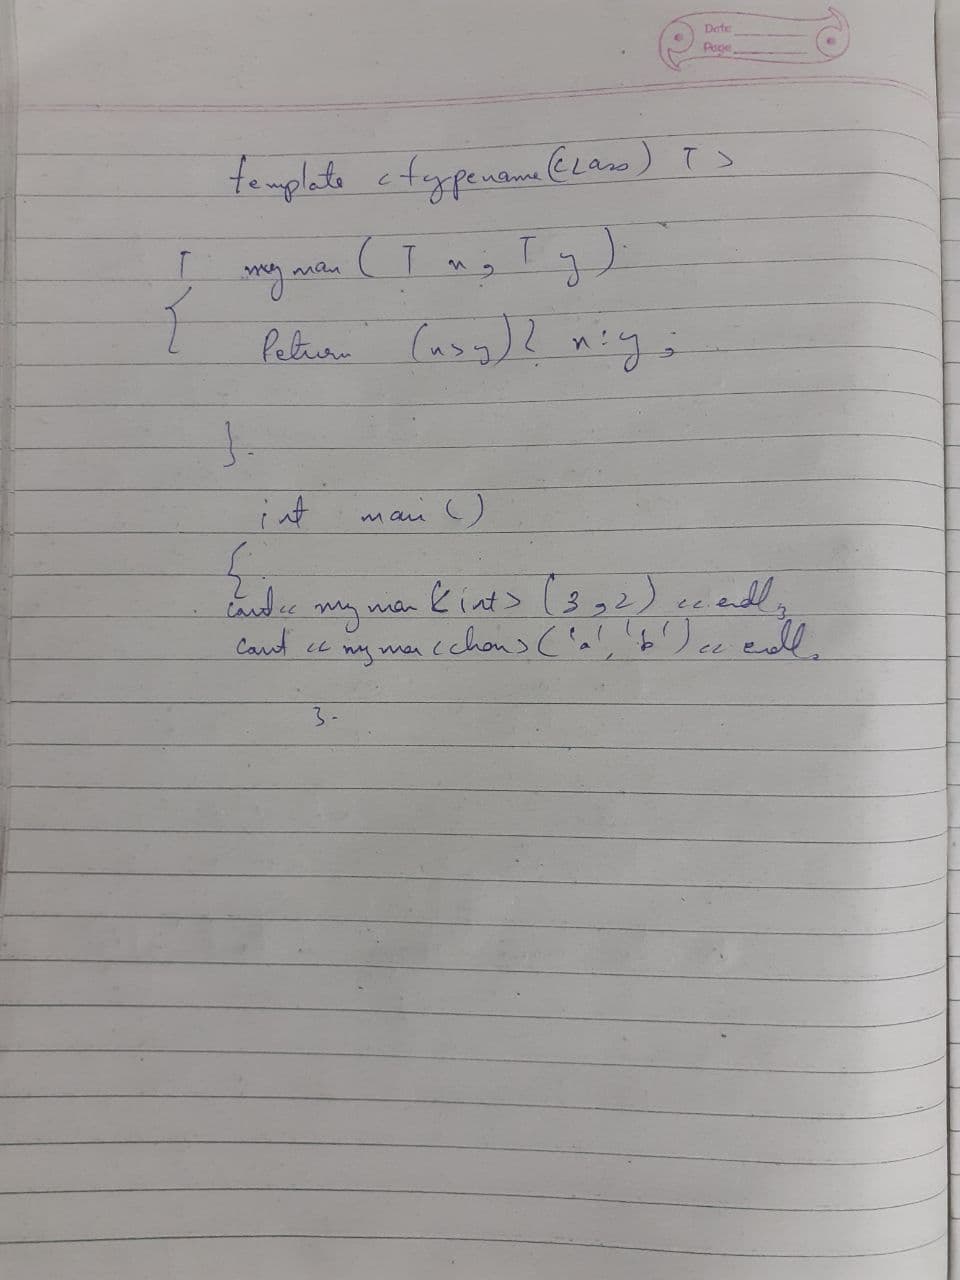 Date
Page
template <typename(class) T >
T myman ( T x, T y )
{ Return (x>y)? x:y;
}.
int main ()
{
cout << myman <int> (3,2) << endl;
cout << myman <char> ('a', 'b') << endl;
}.